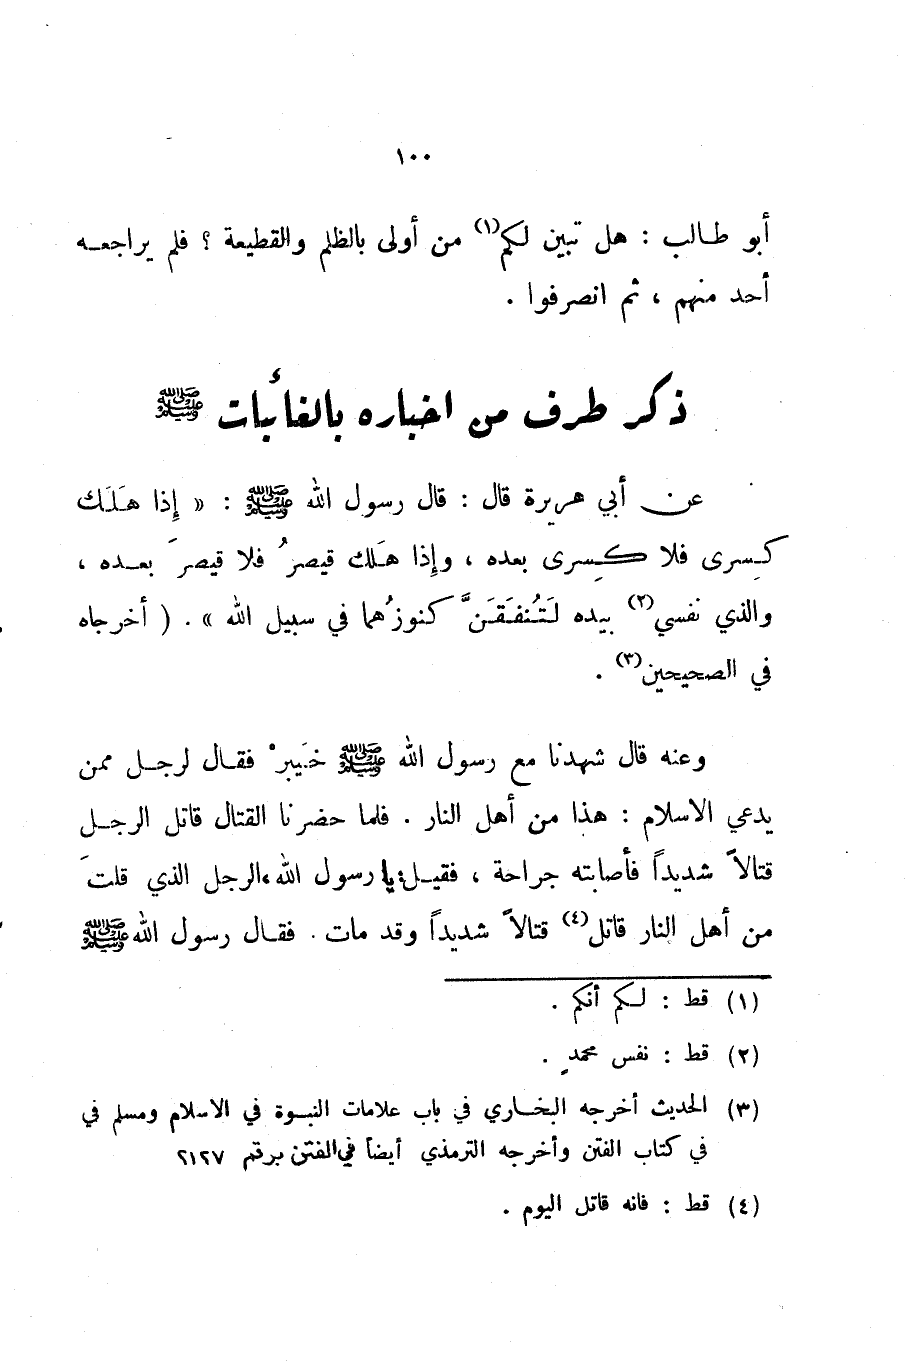 ١٠٠
أبو طالب : هل تبين لكم(١) من أولى بالظلم والقطيعة ؟ فلم يراجعه
أحد منهم ، ثم انصرفوا .
ذكر طرف من اخباره بالغائبات ﷺ
عن أبي هريرة قال : قال رسول الله ﷺ : « إِذا هَلَك
كِسرى فلا كِسرى بعده ، وإِذا هَلك قيصرُ فلا قيصرَ بعده ،
والذي نفسي(٢) بيده لَتُنفَقَنَّ كنوزُهما في سبيل الله » . ( أخرجاه
في الصحيحين(٣) .
وعنه قال شهدنا مع رسول الله ﷺ خَيبرْ فقال لرجل ممن
يدعي الاسلام : هذا من أهل النار . فلما حضرنا القتال قاتل الرجل
قتالاً شديداً فأصابته جراحة ، فقيل: يا رسول الله، الرجل الذي قلتَ
من أهل النار قاتل(٤) قتالاً شديداً وقد مات . فقال رسول الله ﷺ
(١) قط : لكم أنكم .
(٢) قط : نفس محمدٍ .
(٣) الحديث أخرجه البخاري في باب علامات النبوة في الاسلام ومسلم في
في كتاب الفتن وأخرجه الترمذي أيضاً في الفتن برقم ٢١٢٧
(٤) قط : فانه قاتل اليوم .